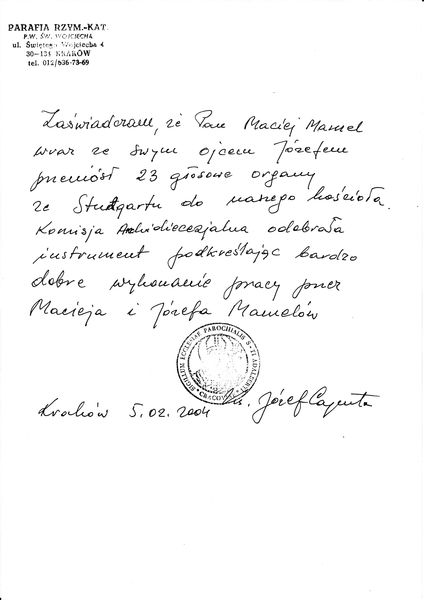 PARAFIA RZYM.-KAT.
P.W. ŚW. WOJCIECHA
ul. Świętego Wojciecha 4
30-134 KRAKÓW
tel. 012/636-73-69
Zaświadczam, że Pan Maciej Mamel
wraz ze swym ojcem Józefem
przeniósł 23 głosowe organy
ze Stuttgartu do naszego kościoła.
Komisja Archidiecezjalna odebrała
instrument podkreślając bardzo
dobre wykonanie pracy przez
Macieja i Józefa Mamelów
SIGILLUM ECCLESIAE PAROCHIALIS S-TI ADALBERTI
CRACOVIAE
Kraków 5.02.2004 ks. Józef Caputa